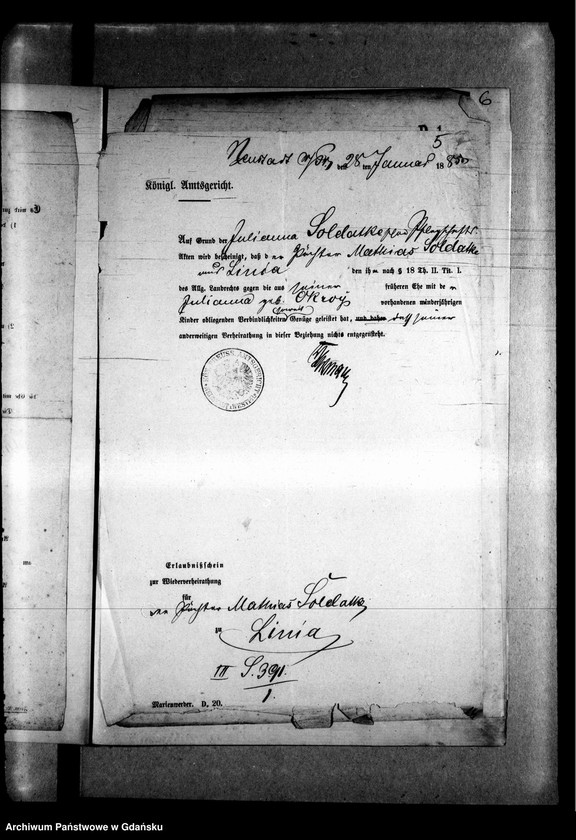 6
D. 1
5
Neustadt W/Pr, den 28 ten Januar 1885
Königl. Amtsgericht.
Auf Grund der Julianna Soldatke'schen Pflegschafts
Akten wird bescheinigt, daß der Pächter Mathias Soldatke
aus Linia den ihm nach § 18 Th. II. Tit. 1.
des Allg. Landrechts gegen die aus seiner früheren Ehe mit der
Julianna geb. Okroy vorhandenen minderjährigen
Kinder obliegenden Verbindlichkeiten soweit Genüge geleistet hat, und daher daß seiner
anderweitigen Verheirathung in dieser Beziehung nichts entgegensteht.
Erlaubnißschein
zur Wiederverheirathung
für
den Pächter Mathias Soldatke
zu
Linia
III S. 391.
1.
Marienwerder. D. 20.
Archiwum Państwowe w Gdańsku